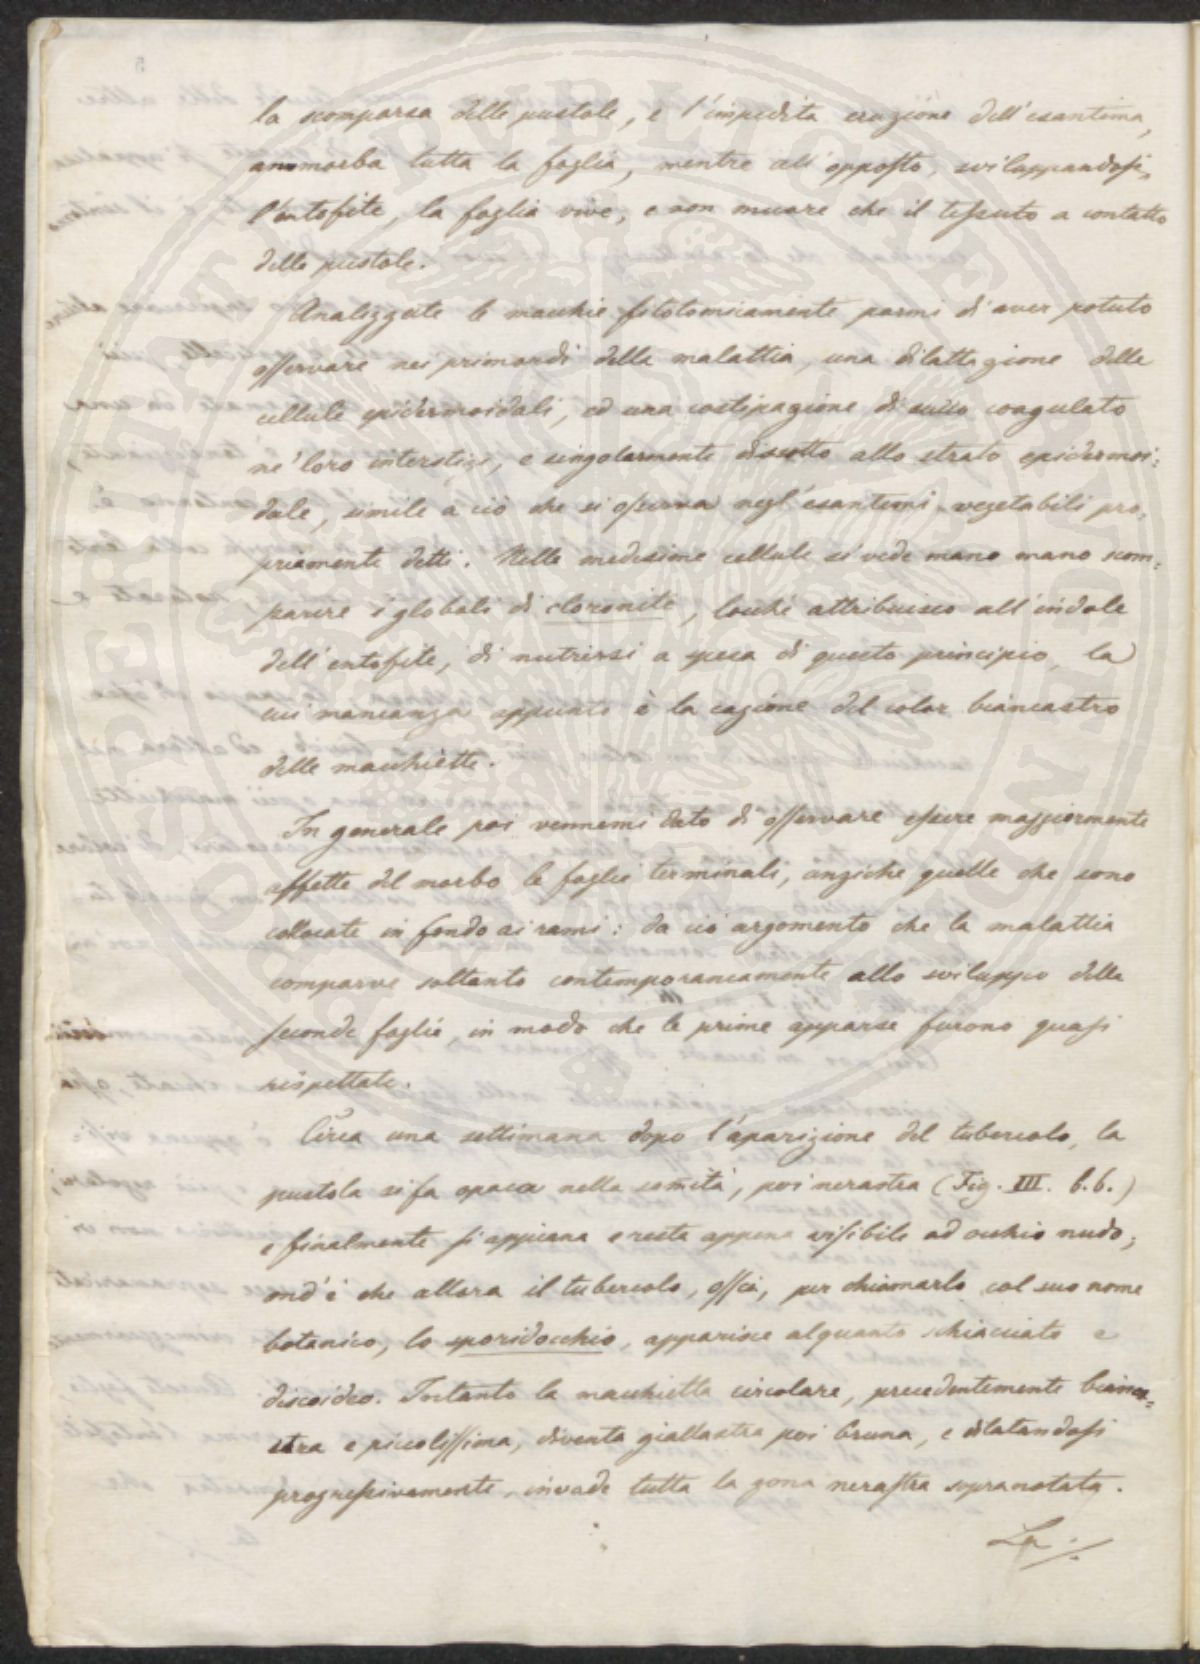 la scomparsa delle pustole, e l'impedita eruzione dell'esantema,
ammorba tutta la foglia, mentre all'opposto, sviluppandosi
l'entofite, la foglia vive, e non muore che il tessuto a contatto
delle pustole.
Analizzate le macchie fitotomicamente parmi di aver potuto
osservare nei primordi della malattia, una dilattazione delle
cellule epidermoidali, ed una costipazione di succo coagulato
ne' loro interstizi, e singolarmente disotto allo strato epidermoi=
dale, simile a ciò che si osserva negl'esantemi vegetabili pro=
priamente detti. Nelle medesime cellule si vede mano mano scom=
parire i globoli di cloronite, locché attribuisco all'indole
dell'entofite, di nutrirsi a spesa di questo principio, la
cui mancanza appunto è la cagione del color biancastro
delle macchiette.
In generale poi vennemi dato di osservare essere maggiormente
affette del morbo le foglie terminali, anziche quelle che sono
collocate in fondo ai rami: da ciò argomento che la malattia
comparve soltanto contemporaneamente allo sviluppo delle
seconde foglie, in modo che le prime apparse furono quasi
rispettate.
Circa una settimana dopo l'aparizione del tubercolo, la
pustola si fa opaca nella somità, poi nerastra (Fig. III. b.b.)
e finalmente si appiana e resta appena visibile ad occhio nudo;
ond'è che allora il tubercolo, ossia, per chiamarlo col suo nome
botanico, lo sporidocchio, apparisce alquanto schiacciato e
discoideo. Intanto la macchietta circolare, precedentemente bianca=
stra e picolissima, diventa giallastra poi bruna, e dilatandosi
progressivamente, invade tutta la zona nerastra sopranotata.
La